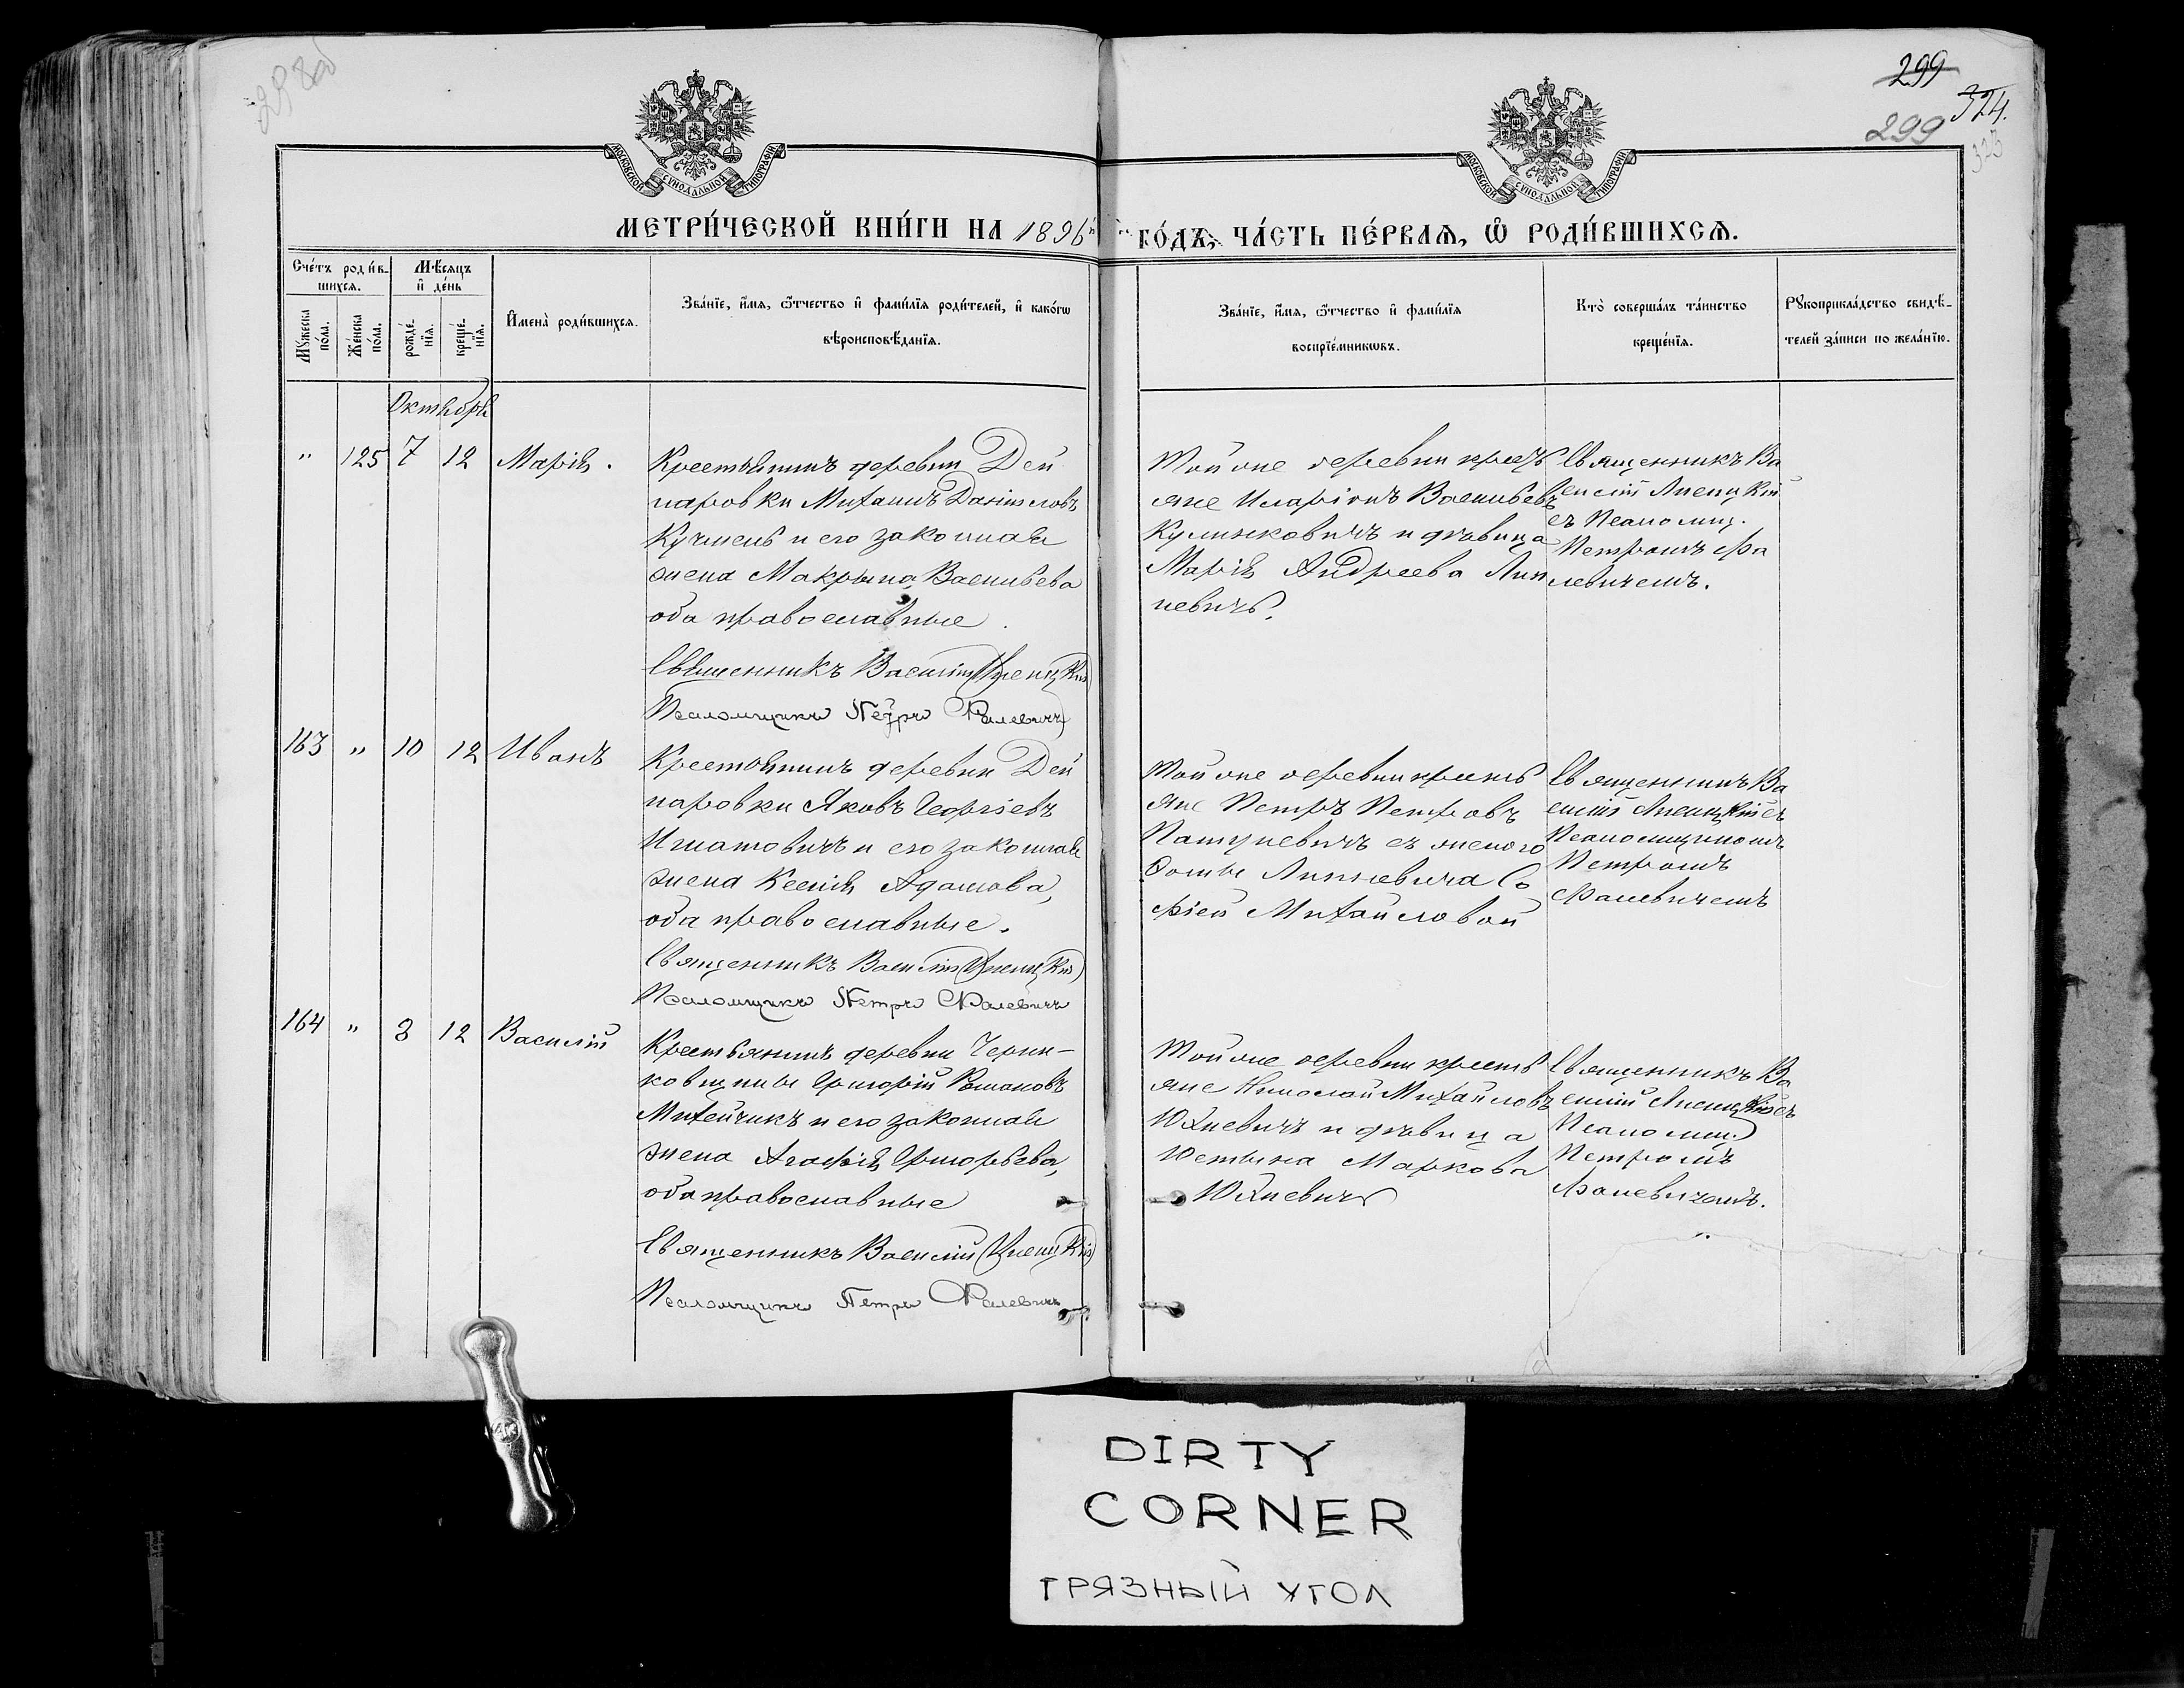 298об
299
324.
299
МОСКОВСКОЙ СѴНОДАЛЬНОЙ ТИПОГРАФІИ
МОСКОВСКОЙ СѴНОДАЛЬНОЙ ТИПОГРАФІИ
МЕТРИ́ЧЕСКОЙ КНИ́ГИ НА 1896й
ГО́ДЪ, ЧА́СТЬ ПЕ́РВАѦ, Ѡ҆ РОДИ́ВШИХСѦ.
Сче́тъ роди́в-
шихсѧ.
Мѣ́сѧцъ
и҆ де́нь
Мꙋ́жеска
по́ла.
Же́нска
по́ла.
рожде́-
нїѧ.
креще́-
нїѧ.
И҆мена̀ роди́вшихсѧ.
Зва́нїе, и҆́мѧ, ѻ҆́тчество и҆ фамі́лїѧ роди́телей, и҆ како́гѡ
вѣроисповѣ́данїѧ.
Зва́нїе, и҆́мѧ, ѻ҆́тчество и҆ фамі́лїѧ
воспрїе́мникѡвъ.
Кто̀ соверша́лъ та́инство
креще́нїѧ.
Рꙋкоприкла́дство свидѣ́-
телей за́писи по жела́нїю.
Октябрь
" 125 7 12 Марія.
Крестьянинъ деревни Дей
наровки Михаилъ Данииловъ
Кучмень и его законная
жена Макрына Васильева
оба православные.
Священникъ Василій
Псаломщикъ Петръ Фалевичъ
Той же деревни кресть
яне Иларіонъ Васильевъ
Кулинковичъ и дѣвица
Марія Андреева Лин
кевичъ.
Священникъ Ва
силій
съ Псаломщ.
Петромъ Фа
левичемъ.
163 " 10 12 Иванъ
Крестьянинъ деревни Дей
наровки Яковъ Георгіевъ
Игнатовичъ и его законная
жена Ксенія Адамова,
оба православные.
Священникъ Василій
Псаломщикъ Петръ Фалевичъ
Той же деревни кресть
яне Петръ Петровъ
съ женою
Фомы Линкевича Со
фіей Михайловой
Священникъ Ва
силій съ
Псаломщикомъ
Петромъ
Фалевичемъ
164 " 8 12 Василій
Крестьянинъ деревни Черни-
ковщины Григорій Романовъ
Михейчикъ и его законная
жена Агафія Григорьева,
оба православные
Священникъ Василій
Псаломщикъ Петръ Фалевичъ
Той же деревни кресть
яне Николай Михайловъ
Юхневичъ и дѣвица
Юстына Маркова
Юхневичъ
Священникъ Ва
силій съ
Псаломщ.
Петромъ
Фалевичемъ.
DIRTY
CORNER
ГРЯЗНЫЙ УГОЛ